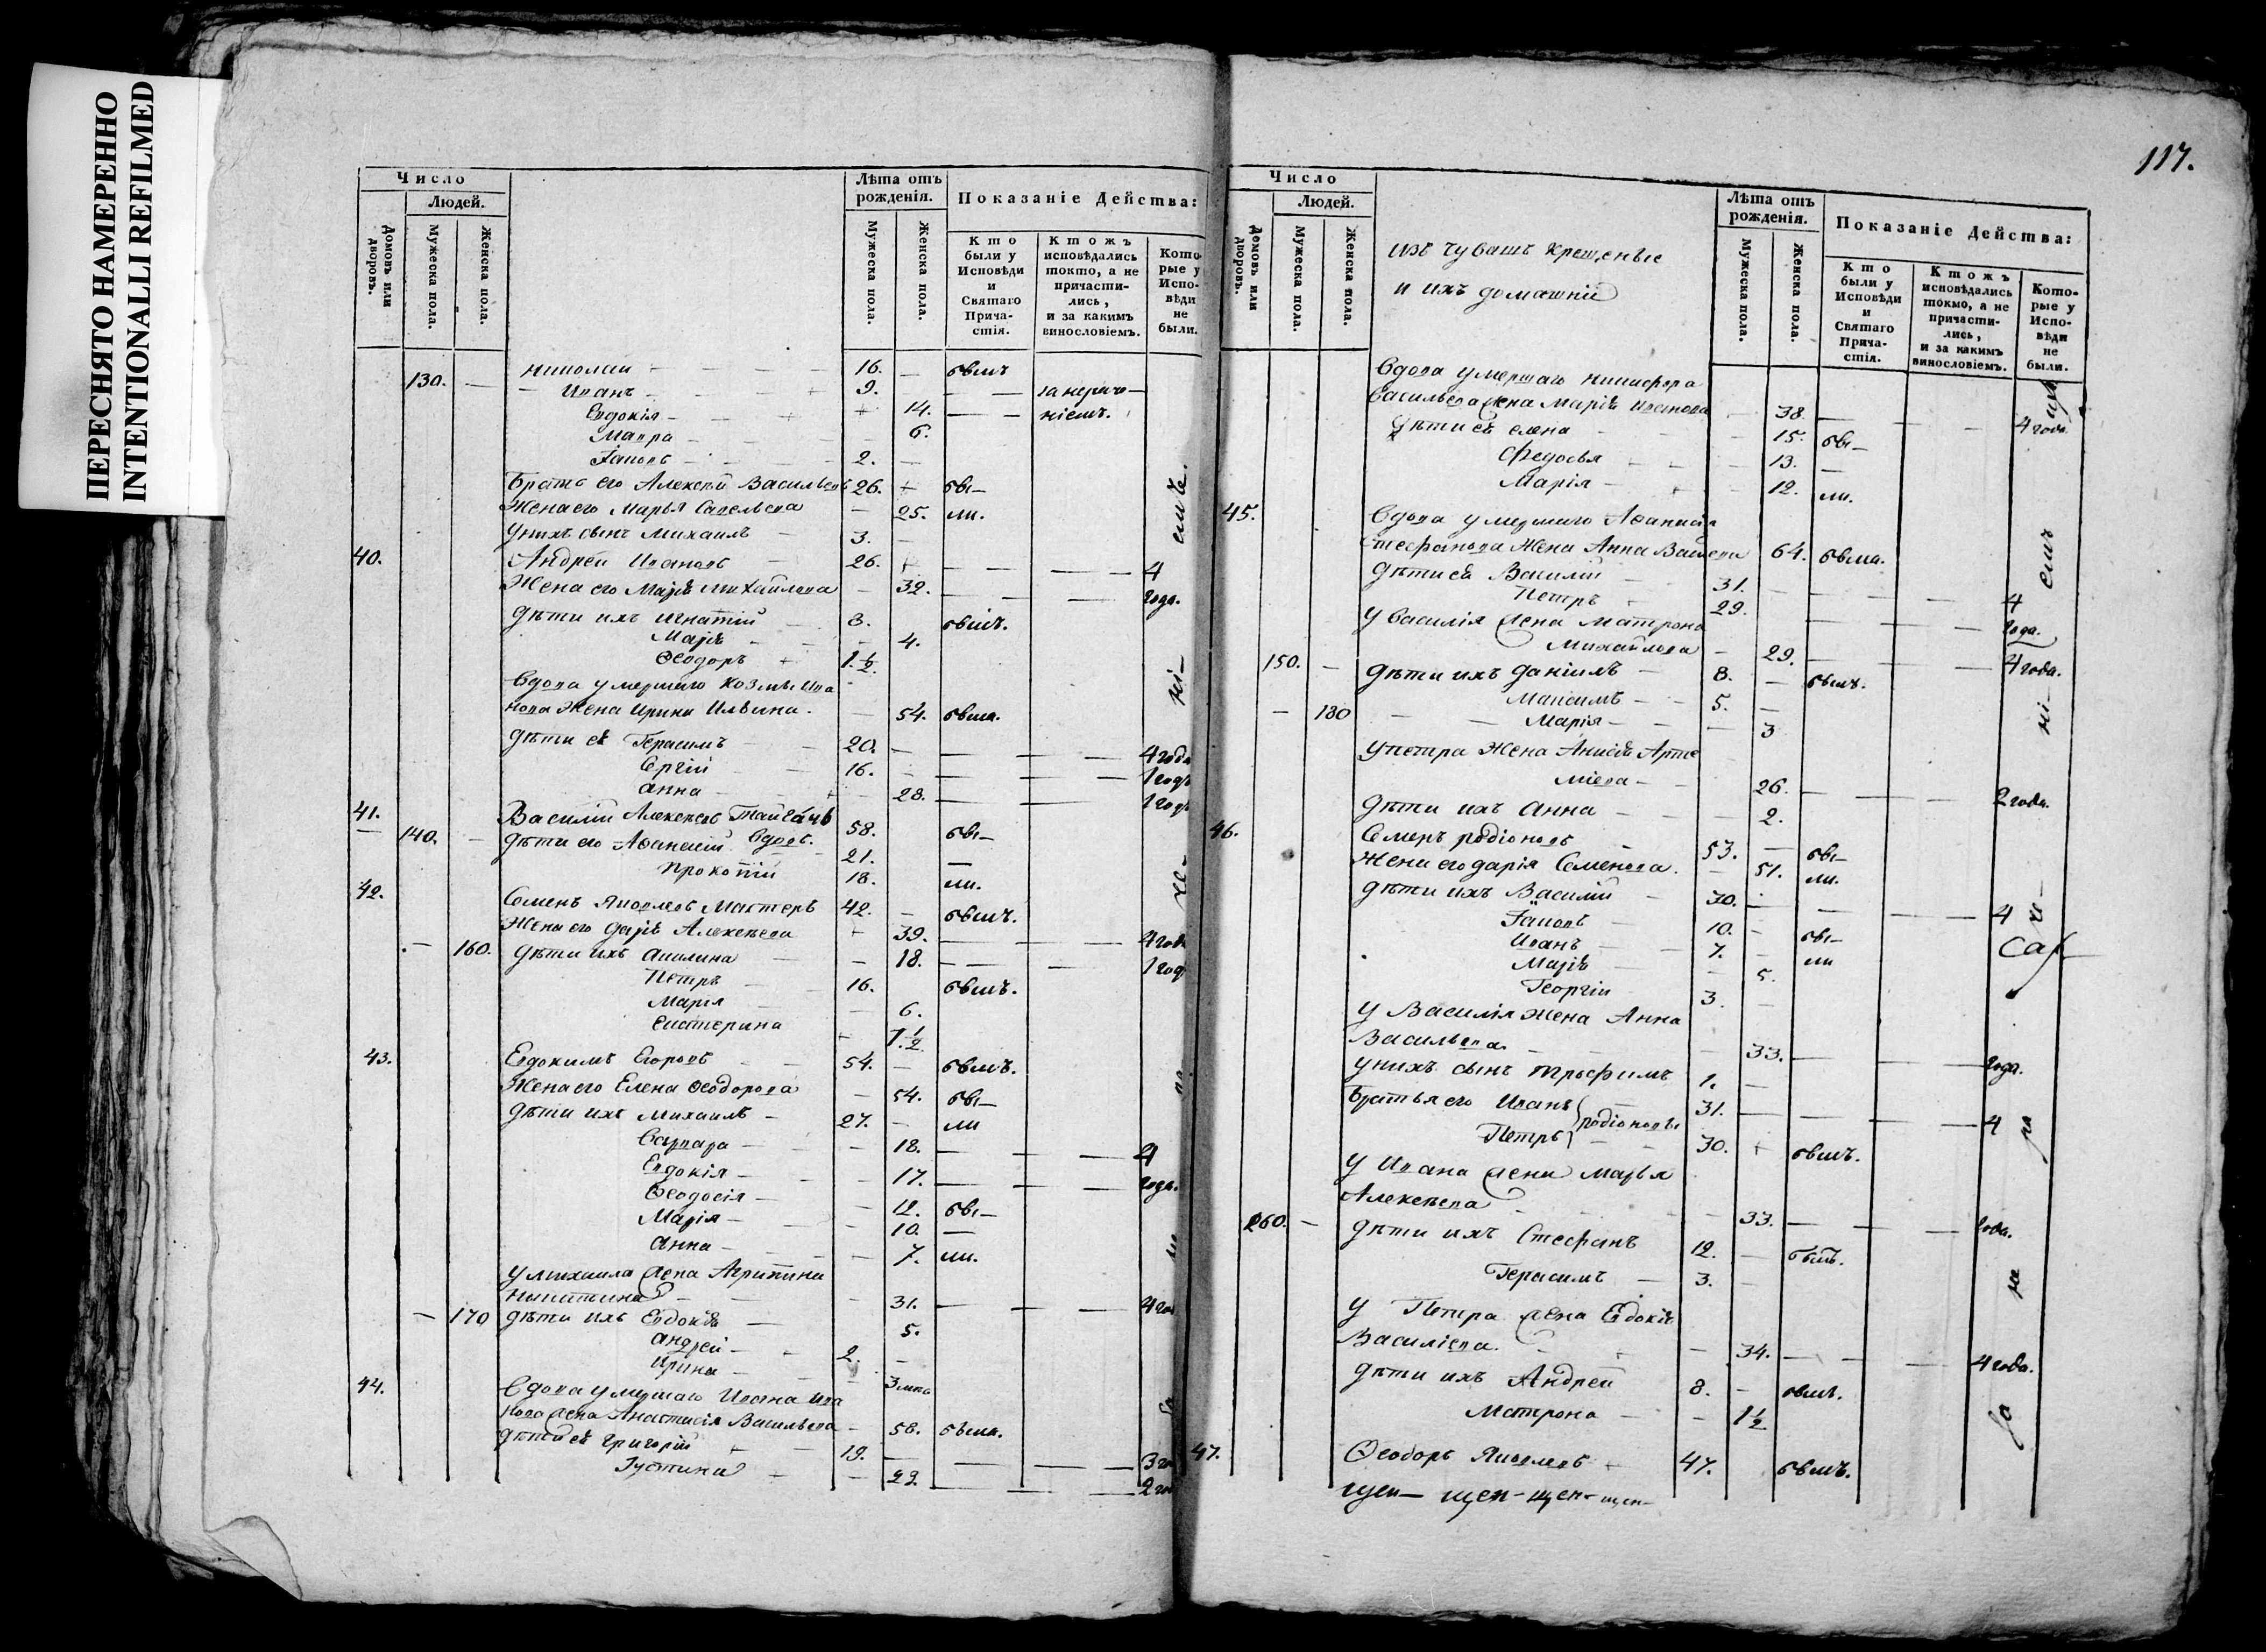 ПЕРЕСНЯТО НАМЕРЕННО
INTENTIONALLI REFILMED
Число
Людей.
Домовъ или дворовъ.
Мужеска пола.
Женска пола.
Лѣта отъ рожденія.
Мужеска пола.
Женска пола.
Показаніе Дѣйства:
Кто были у Исповѣди и Святаго Причастія.
Ктожъ исповѣдались токмо, а не причастились, и за какимъ винословіемъ.
Которые у Исповѣди не были.
130. Николай 16. былъ
Иванъ 9.
Евдокія 14.
Мавра 6.
Іаковъ 2.
Братъ его Алексѣй Васильевъ 26. бы—
Жена его Марья Савельева 25. ли.
У нихъ сынъ Михаилъ 3.
40. Андрей Ивановъ 26. 4
Жена его Марія Михайлова 32. года.
Дѣти ихъ Игнатій 8. былъ.
Марія 4.
Ѳеодоръ 1 1/2
Вдова умершаго Козмы Ива
нова жена Ирина Ильина. 54. была.
Дѣти её Герасимъ 20. 4 года
Сергій 16. 1 годъ
Анна 28. 1 годъ
41. Василій Алексѣевъ 58. бы—
140. Дѣти его Аѳанасій Вдовъ. 21. —
Прокопій 18. ли.
42. Семенъ Яковлевъ Мастеръ 42. былъ.
Жена его Дарія Алексѣева 39. 4 года
160. Дѣти ихъ Акилина 18. 1 год
Петръ 16. былъ.
Марія 6.
Екатерина 1 1/2
43. Евдокимъ Егоровъ 54. былъ.
Жена его Елена Ѳеодорова 54. бы—
Дѣти ихъ Михаилъ 27. ли
Варвара 18. 4
Евдокія 17. года.
Ѳеодосія 12. бы—
Марія 10. —
Анна 7. ли.
У Михаила жена Агрипина
Никитина 31. 4 го
170 Дѣти ихъ Евдокія 5.
Андрей 2.
Ирина 3
44. Вдова умершаго Ивана Ива
нова жена Анастасія Васильева 58. была.
Дѣти её Григорій 19. 3 го
Іустина 22. 2 го
117.
Число
Людей.
Домовъ или дворовъ.
Мужеска пола.
Женска пола.
изъ чувашъ крещеные
и ихъ домашніе
Лѣта отъ рожденія.
Мужеска пола.
Женска пола.
Показаніе Дѣйства:
Кто были у Исповѣди и Святаго Причастія.
Ктожъ исповѣдались токмо, а не причастились, и за какимъ винословіемъ.
Которые у Исповѣди не были.
Вдова умершаго Никифора
Васильева жена Марія Иванова 38. 4 года
Дѣти её Елена 15. бы—
Федосья 13. —
Марія 12. ли.
45. Вдова умершаго Аѳанасія
Стефанова жена Анна 64. была.
Дѣти её Василій 31. 4
Петръ 29. года.
У Василія жена Матрона
Михайлова 29. 4 года.
150. Дѣти ихъ Даніилъ 8. былъ.
Максимъ 5.
180 Марія 3
У Петра жена Анисія Арте
міева 26. 2 года.
Дѣти ихъ Анна 2.
46. Семенъ Родіоновъ 53. бы—
Жена его Дарія Семенова. 51. ли.
Дѣти ихъ Василій 30. 4
Іаковъ 10. бы—
Иванъ 7. ли
Марія 5.
Георгій 3.
У Василія жена Анна
Васильева. 33. года.
У нихъ сынъ Трофимъ 1.
Братья его Иванъ Родіоновы 31. 4
Петръ 30. былъ.
У Ивана жена Марья
Алексѣева 33. года.
260. Дѣти ихъ Стефанъ 12. былъ.
Герасимъ 3.
У Петра жена Евдокія
Василіева. 34. 4 года.
Дѣти ихъ Андрей 8. былъ.
Матрона 1 1/2
47. Ѳеодоръ Яковлевъ 47. былъ.